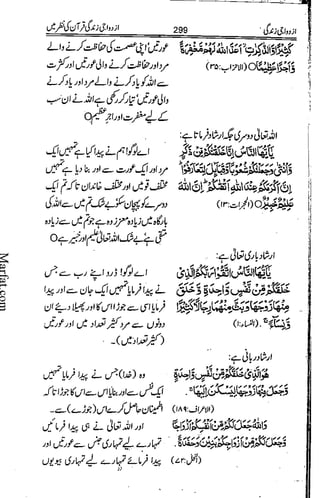 ازدواجی زندگی قرآن کی نظر میں
299
ازدواجی زندگی
كَثِيرًا وَّالذّٰكِرٰتِ ۙ اَعَدَّ اللّٰهُ لَهُمْ مَّغْفِرَةً
وَّاَجْرًا عَظِيْمًا ○ (الاحزاب:۳۵)
عورتیں اپنی عصمت کی حفاظت کرنے والے
مرد اور حفاظت کرنے والی عورتیں اور کثرت
سے اللہ کو یاد کرنے والے مرد اور یاد کرنے
والی عورتیں تیار کر رکھی ہے اللہ نے ان سب
کے لیے مغفرت اور اجر عظیم ○
اللہ تعالٰی دوسری جگہ ارشاد فرماتا ہے:
يٰٓاَيُّهَا النَّاسُ اِنَّا خَلَقْنٰكُمْ مِّنْ ذَكَرٍ
وَّاُنْثٰى وَجَعَلْنٰكُمْ شُعُوْبًا وَّقَبَآئِلَ لِتَعَارَفُوْا ؕ
اِنَّ اَكْرَمَكُمْ عِنْدَ اللّٰهِ اَتْقٰىكُمْ ؕ اِنَّ اللّٰهَ
عَلِيْمٌ خَبِيْرٌ ○ (الحجرات:۱۳)
اے لوگو! ہم نے پیدا کیا ہے تمہیں ایک
مرد اور ایک عورت سے اور بنا دیا ہے تمہیں
مختلف قومیں اور مختلف خاندان تاکہ تم ایک
دوسرے کو پہچان سکو بے شک تم میں سے اللہ کی
بارگاہ میں زیادہ معزز وہ ہے جو تم میں سے زیادہ
متقی ہے بے شک اللہ تعالٰی علیم اور خبیر ہے ○
ارشاد باری تعالٰی ہے:
يٰٓاَيُّهَا النَّاسُ اتَّقُوْا رَبَّكُمُ الَّذِيْ
خَلَقَكُمْ مِّنْ نَّفْسٍ وَّاحِدَةٍ وَّخَلَقَ
مِنْهَا زَوْجَهَا وَبَثَّ مِنْهُمَا رِجَالًا كَثِيْرًا
وَّنِسَآءً ۚ (النساء:۱)
اے لوگو! ڈرو اپنے رب سے جس
نے پیدا فرمایا تمہیں ایک جان سے اور پیدا
فرمایا اسی سے جوڑا اس کا اور پھیلا دیئے ان
دونوں سے مرد کثیر تعداد میں اور عورتیں
(کثیر تعداد میں)۔
ارشاد ربانی ہے:
هُوَ الَّذِيْ خَلَقَكُمْ مِّنْ نَّفْسٍ وَّاحِدَةٍ
وَّجَعَلَ مِنْهَا زَوْجَهَا لِيَسْكُنَ اِلَيْهَا ۚ
(الاعراف:۱۸۹)
وہ (خدا) جس نے پیدا فرمایا تمہیں
ایک نفس سے اور بنایا اس سے اس کا جوڑا تاکہ
اطمینان حاصل کرے اس (جوڑے) سے۔
وَاللّٰهُ جَعَلَ لَكُمْ مِّنْ اَنْفُسِكُمْ اَزْوَاجًا
وَّجَعَلَ لَكُمْ مِّنْ اَزْوَاجِكُمْ بَنِيْنَ وَحَفَدَةً ۔
(النحل:۷۲)
اور اللہ تعالٰی نے ہی پیدا فرمائیں
تمہارے لیے تمہاری جنس سے عورتیں اور
پیدا فرمائے تمہارے لیے تمہاری بیویوں
Marfat.com